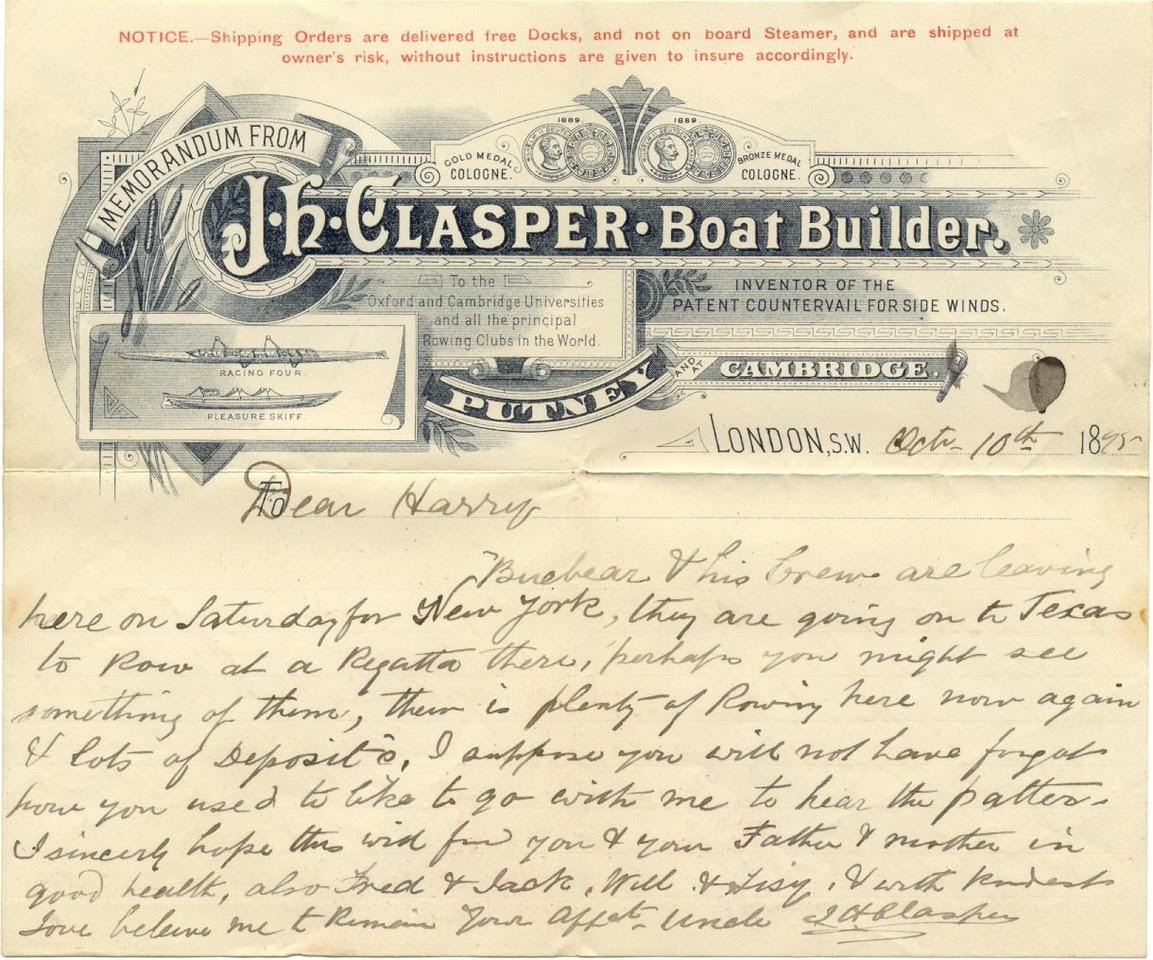 NOTICE.—Shipping Orders are delivered free Docks, and not on board Steamer, and are shipped at
owner's risk, without instructions are given to insure accordingly.
MEMORANDUM FROM
1889
1889
GOLD MEDAL
COLOGNE.
BRONZE MEDAL
COLOGNE.
J.H.CLASPER·Boat Builder.
To the
Oxford and Cambridge Universities
and all the principal
Rowing Clubs in the World.
INVENTOR OF THE
PATENT COUNTERVAIL FOR SIDE WINDS.
RACING FOUR.
PLEASURE SKIFF.
PUTNEY
AND AT
CAMBRIDGE.
LONDON, S.W. Oct- 10th 1895-
To
Dear Harry
Bubear & his Crew are leaving
here on Saturday for New York, they are going on to Texas
to Row at a Regatta there, perhaps you might see
something of them, there is plenty of Rowing here now again
& lots of Deposits, I suppose you will not have forgot
how you used to like to go with me to hear the patter-
I sincerly hope this will find you & your Father & mother in
good health, also Fred & Jack, Will & Lisy, & with kindest
Love beleive me to Remain Your Affct- Uncle J H Clasper